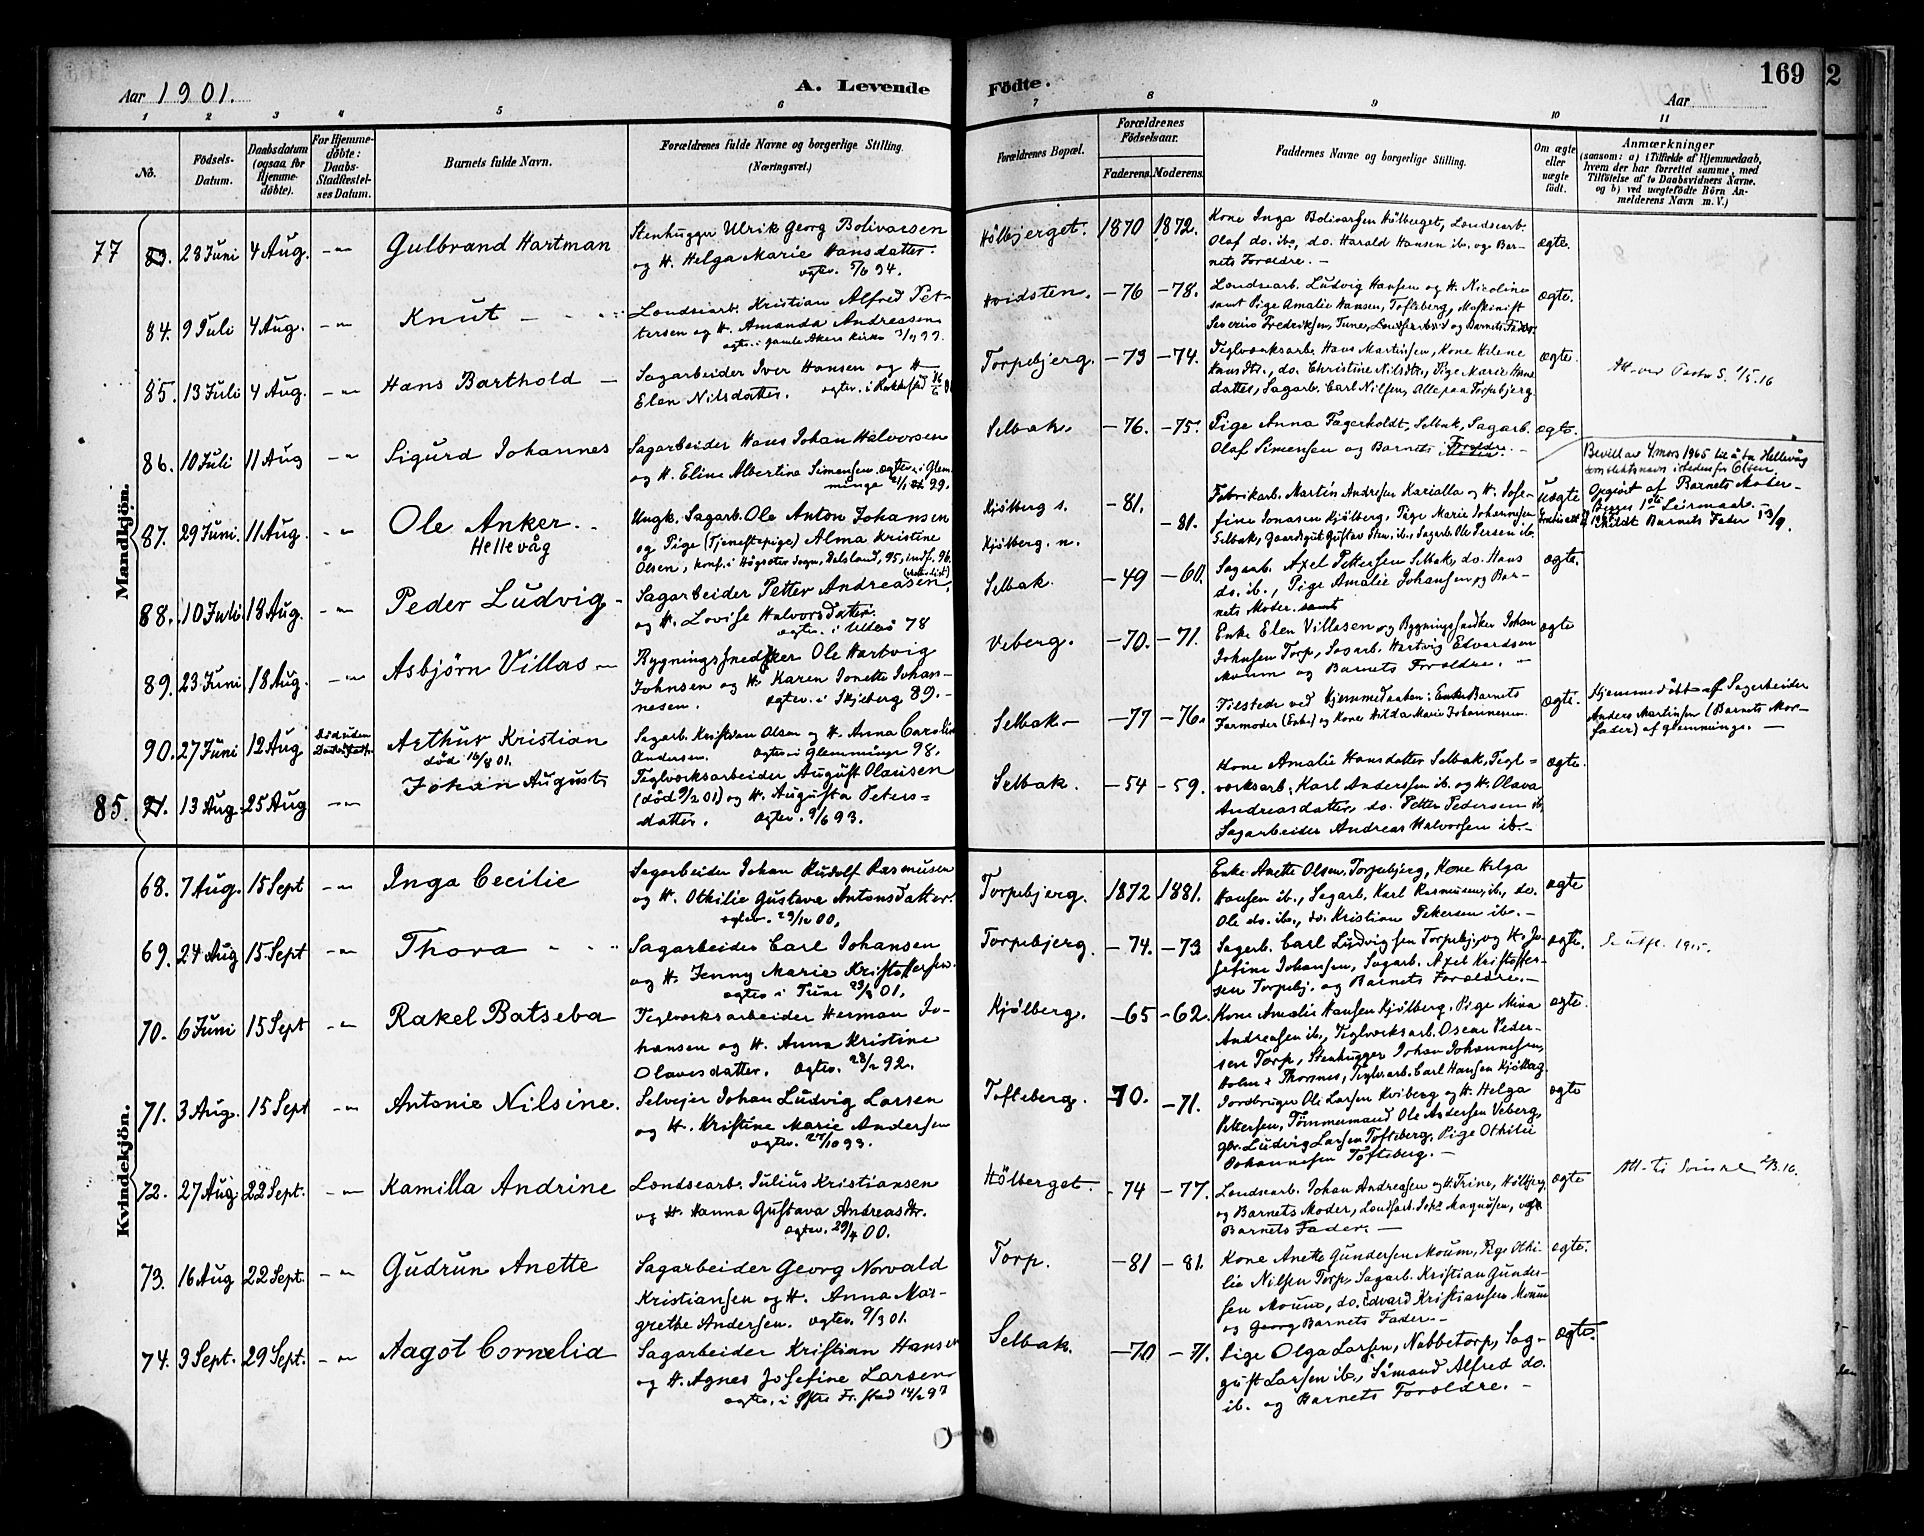 Aar 1901.
A. Levende
Födte.
Aar
169
2
1 2 3 4 5 6 7 8 9 10 11
No.
Födsels-Datum.
Daabsdatum (ogsaa for Hjemme-döbte).
For Hjemme-döbte: Daabs-Stadfæstel-ses Datum.
Barnets fulde Navn.
Forældrenes fulde Navne og borgerlige Stilling. (Næringsvei.)
Forældrenes Bopæl.
Forældrenes Födselsaar.
Faderens. Moderens.
Faddernes Navne og borgerlige Stilling.
Om ægte eller uægte födt.
Anmærkninger
(saasom: a) i Tilfælde af Hjemmedaab,
hvem der har forrettet samme, med
Tilföielse af to Daabsvidners Navne,
og b) ved uægtefödte Börn An-
melderens Navn m. V.)
Mandkjön.
77
83. 28 Juni 4 Aug. Gulbrand Hartman
Stenhugger Ulrik Georg Bolivarsen
og H. Helga Marie Hansdatter.
Hølbjerget. 1870 1872.
Kone Inga Bolivarsen Hølberget, Londsearb.
Olaf do. ib., do. Harald Hansen ib. og Bar-
nets Forældre. —
ægte.
84. 9 Juli 4 Aug. Knut
Londsearb. Kristian Alfred Pet-
tersen og H. Amanda Andreassen
ægtev. i gamle Akers kirke
Hvidsten. —76 —78.
Londsearb. Ludvig Hansen og H. Nicoline
samt Pige Amalie Hansen, Tofteberg, Maskinist
Severin Fredriksen, Tune,
ægte.
85. 13 Juli 4 Aug. Hans Barthold
Sagarbeider Iver Hansen og H.
Elen Nilsdatter. ægtev. i
Torpebjerg. —73 —74.
Teglværksarb. Hans Martinsen, Kone Helene
do. Christine Nilsdtr., Pige Marie Hans
datter, Sagarb. Carl Nilsen, Alle paa Torpebjerg
ægte.
86. 10 Juli 11 Aug Sigurd Johannes
Sagarbeider Hans Johan Halvorsen
og H. Eline Albertine Simensen ægtev. i Glem-
minge 99.
Selbak. —76. —75.
Pige Anna Fagerholdt, Selbak, Sagarb.
Olaf Simensen og Barnets Forældre. —
ægte.
87. 29 Juni 11 Aug. Ole Anker.
Hellevåg
Ungk. Sagarb. Ole Anton Johansen
og Pige (Tjenestepige) Alma Kristine
Olsen, konf. i Högsäter Sogn, Dalsland, 95, indf. 96.
Kjølberg s. —81.
Kjølberg. n. —81.
Fabrikarb. Martin Andersen Karialla og H. Jose-
fine Jonasen Kjølberg, Pige Marie Johannesen
Selbak, Gaardsgut Gustav ib., Sagarb. Ole Persen ib.
uægte
Bevill. av 4 mars 1965 til å ta Hellevåg
som slektsnavn istedenfor Olsen
Opgivet af Barnets Moder —
Begges 1ste Leiermaal. —
Barnets Fader 13/9.
88. 10 Juli 18 Aug. Peder Ludvig
Sagarbeider Petter Andreasen
og H. Lovise Halvorsdatter.
ægtev. i 78
Selbak. —49 —60.
Sagarb. Axel Pettersen Selbak, do. Hans
do. ib., Pige Amalie Johansen og Bar-
nets Moder. samt
ægte.
89. 23 Juni 18 Aug. Asbjørn Villas
Bygningssnedker Ole Hartvig
Johnsen og H. Karen Jonette Johan-
nesen. ægtev. i Skjeberg 89.
Veberg. —70. —71.
Enke Elen Villasen og Bygningssnedker Johan
Johnsen Torp, Sagarb. Hartvig Edvardsen
Moum og Barnets Forældre. —
ægte
90. 27 Juni 12 Aug Arthur Kristian
død 16/8 01.
Sagarb. Kristian Olsen og H. Anna Caroline
Andersen. ægtev. i Glemminge 98.
Selbak — —77 —76.
Tilstede ved Hjemmedaaben: Barnets
Farmoder (Enke) og Kone Hilda Marie Johannesen.
ægte.
Hjemmedøbt af Sagarbeider
Anders Martinsen (Barnets Mor-
fader) af Glemminge. —
85.
91. 13 Aug. 25 Aug Johan August
Teglværksarbeider August Olausen
(død 9/2 01) og H. Augusta Peters-
datter. ægtev. 9/6 93.
Selbak. —54 —59.
Kone Amalie Hansdatter Selbak, Tegl-
værksarb. Karl Anderssen ib. og H. Olava
Andreasdatter, do. Petter Pedersen ib,
Sagarbeider Andreas Halvorsen ib.—
ægte.
Kvindekjön.
68. 7 Aug. 15 Sept Inga Cecilie
Sagarbeider Johan Rudolf Rasmusen
og H. Othilie Gustava Antonsdatter.
ægtev. 29/12 00.
Torpebjerg. 1872 1881.
Enke Anette Olsen, Torpebjerg, Kone Helga
Hansen ib., Sagarb. Karl Rasmusen, ib., do.
Ole do. ib., do. Kristian Pettersen ib. —
ægte
69. 24 Aug 15 Sept Thora
Sagarbeider Carl Johansen
og H. Jenny Marie Kristoffersen.
ægtev. i Tune 01.
Torpebjerg. —74. —73
Sagarb. Carl Ludvigsen Torpebj., og H. Jo-
sefine Johansen, Sagarb. Axel Kristoffer-
sen Torpebj. og Barnets Forældre. —
ægte.
1915.
70. 6 Juni 15 Sept Rakel Batseba
Teglværksarbeider Herman Jo-
hansen og H. Anna Kristine
Olavesdatter. ægtev. 92.
Kjølberg. —65 —62.
Kone Amalie Hansen Kjølberg, Pige Mina
Andreasen ib., Teglværksarb. Oscar Peder-
sen Torp, Stenhugger Johan Johannesen,
Teglv.arb. Carl Hansen Kjølberg
ægte.
71. 3 Aug. 15 Sept Antonie Nilsine.
Selveier Johan Ludvig Larsen
og H. Kristine Marie Andersen
ægtev. 27/10 93.
Tofteberg. 70. —71.
Jordbruger Ole Larsen Kviberg og H. Helga
Pettersen, Tømmermand Ole Andersen Veberg,
Ludvig Larsen Tofteberg, Pige Othilie
Johannesen Tofteberg. —
ægte
72. 27 Aug. 22 Sept. Kamilla Andrine
Londsearb. Julius Kristiansen
og H. Hanna Gustava Andreasdtr.
ægtev. 29/4 00.
Hølberget. —74 —77.
Londsearb. Johan Andreasen og H. Trine, Hølbjerg
og Barnets Moder, Londsarb. Johs Magnusen,
Barnets Fader. —
ægte
73. 16 Aug 22 Sept. Gudrun Anette
Sagarbeider Georg Norvald
Kristiansen og H. Anna Mar-
grethe Andersen. ægtev. 9/3 01.
Torp. —81 —81.
Kone Anette Gundersen Moum, Pige Othi-
lie Nilsen Torp, Sagarb. Kristian Gunder-
sen Moum, do. Edvard Kristiansen Moum
og Georg Barnets Fader. —
ægte.
74. 3 Sept. 29 Sept. Aagot Cornelia
Sagarbeider Kristian Hansen
og H. Agnes Josefine Larsen
ægtev. i Østre Fr.stad 14/2 97
Selbak. —70 —71.
Pige Olga Larsen, Nabbetorp, Sag-
gust Larsen ib., Sömand Alfred do.
ib. og Barnets Forældre. —
ægte.